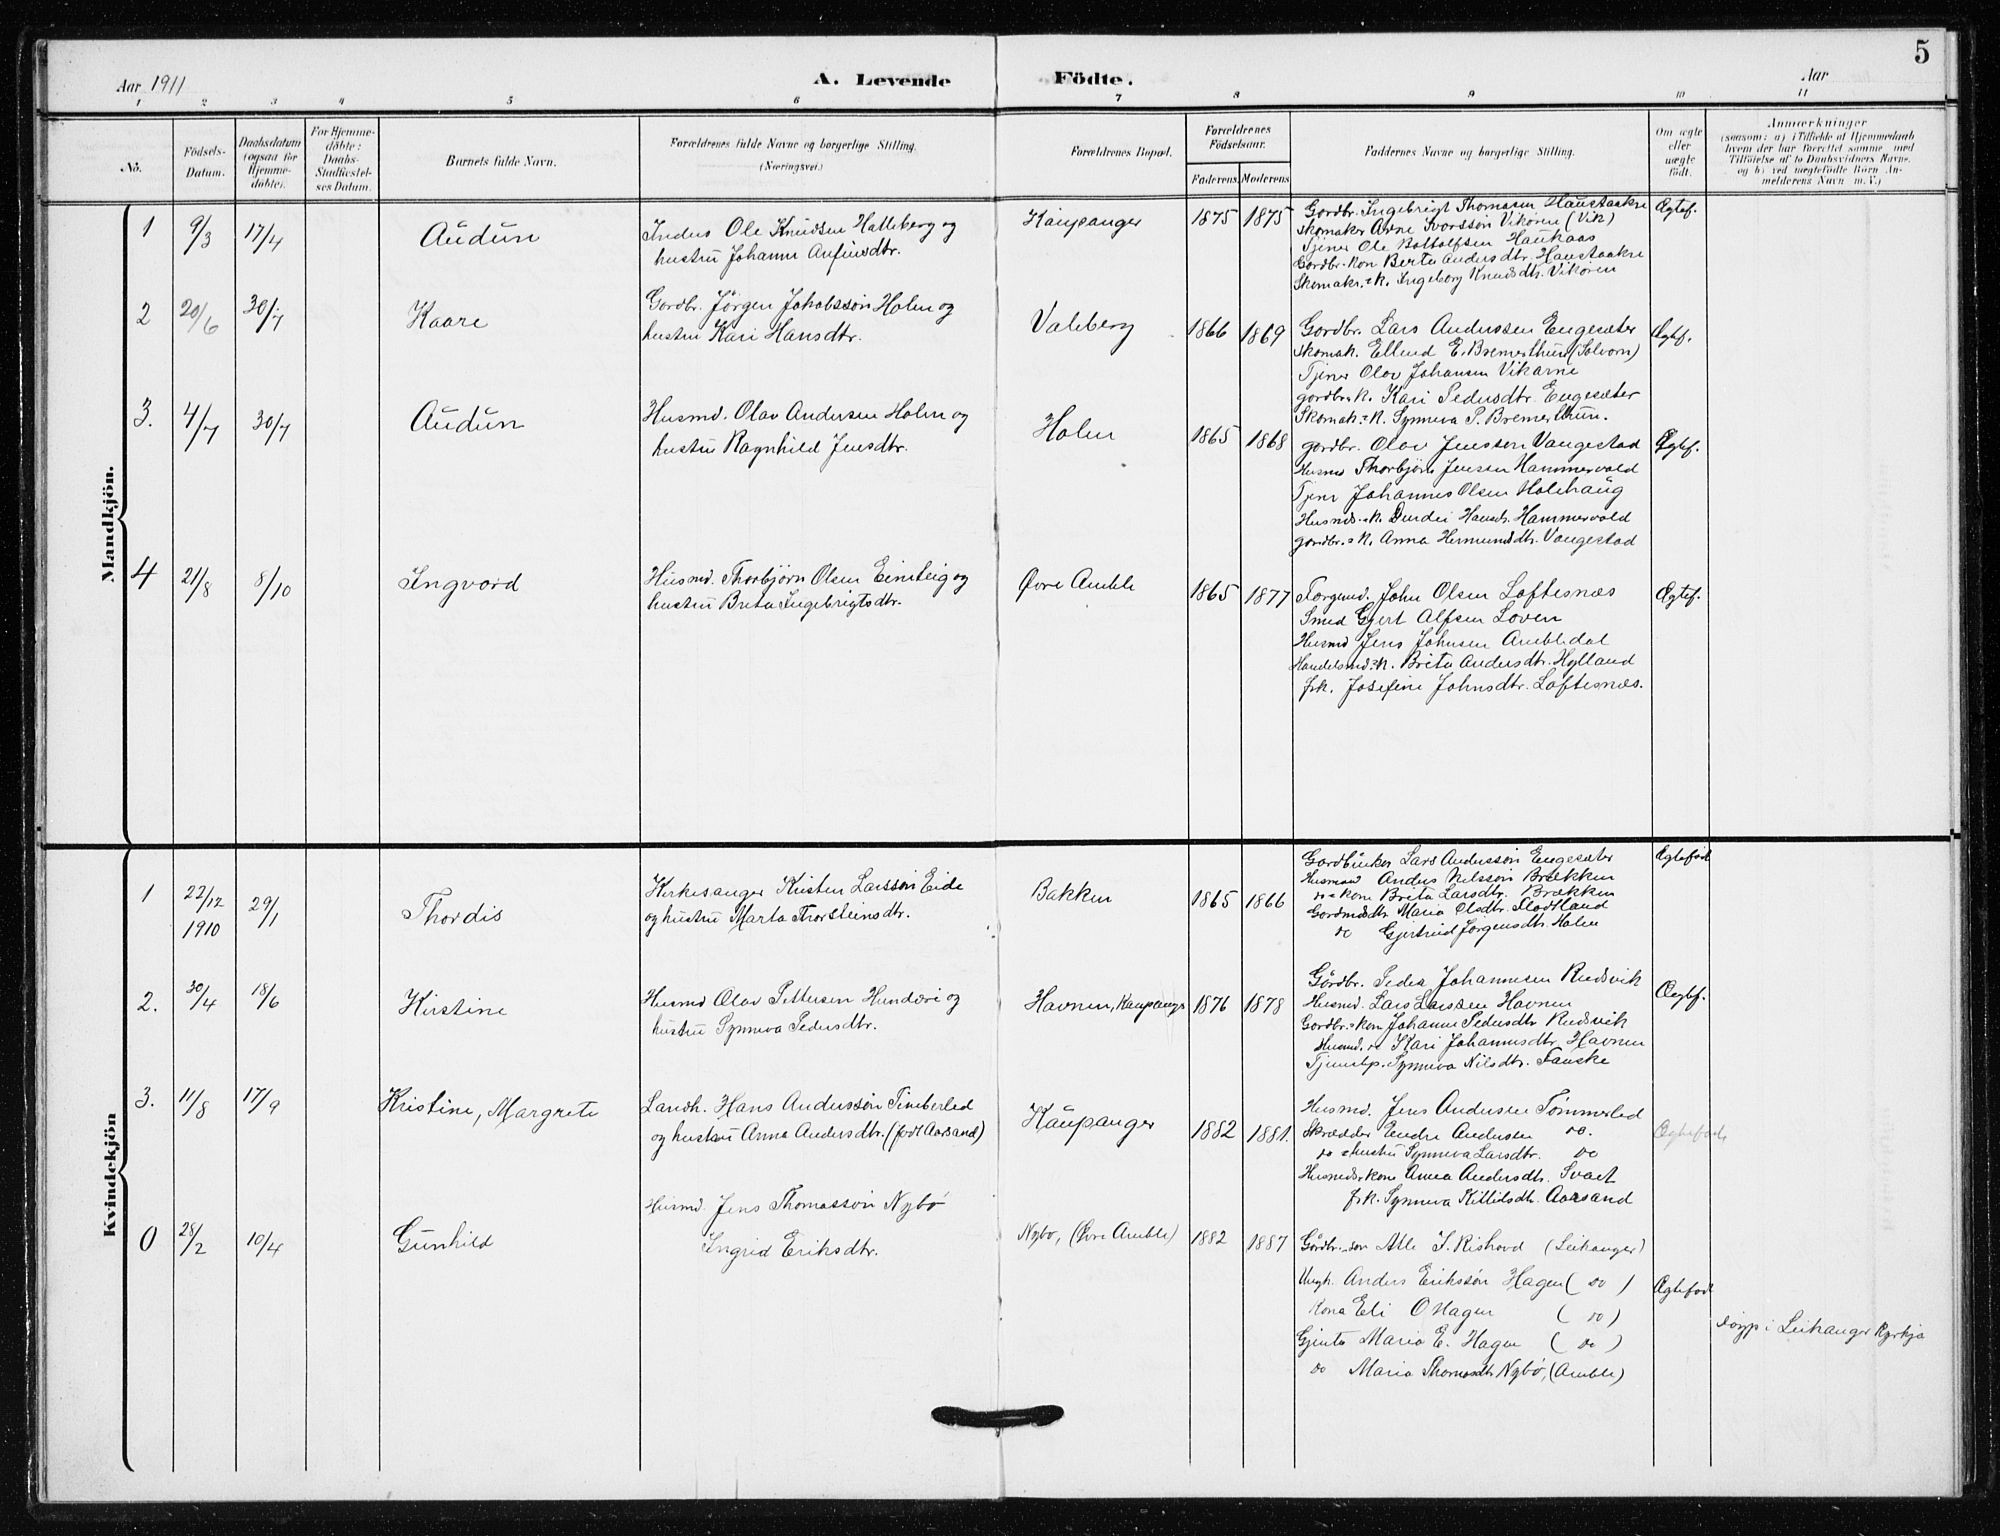 5
Aar 1911 A. Levende Födte. Aar
1 2 3 4 5 6 7 8 9 10 11
No.
Födsels-
Datum.
Daabsdatum
(ogsaa for
Hjemme-
döbte).
For Hjemme-
döbte:
Daabs-
Stadfæstel-
ses Datum.
Barnets fulde Navn.
Forældrenes fulde Navne og borgerlige Stilling.
(Næringsvei.)
Forældrenes Bopæl.
Forældrenes
Födselsaar.
Faderens. Moderens.
Faddernes Navne og borgerlige Stilling.
Om ægte
eller
uægte
födt.
Anmærkninger
(saasom: a) i Tilfælde af Hjemmedaab
hvem der har forrettet samme, med
Tilföielse af to Daabsvidners Navne,
og b) ved uægtefödte Börn An-
melderens Navn m. V.)
Mandkjön.
1 9/3 17/4 Audun
Inders Ole Knudsen Halleberg og
hustru Johanne Anfinsdtr.
Kaupanger 1875 1875
Gordbr. Ingebrigt Thomasen Haustaakre
Skomaker Arne Ivorssön Vikören (Vik)
Tjener Ole Rottolfsen Haukaas
Gordbr.-kon Berta Andersdtr. Haustaakre
Skomakr.-k. Ingeborg Knudsdtr. Vikören
Ægtef.
2 20/6 30/7 Kaare
Gordbr. Jörgen Jakobssön Holm og
hustru Kari Hansdtr.
Valeberg 1866 1869
Gordbr. Lars Anderssen Engesæter
Skomak. Ellend E. Bremerthun (Solvorn)
Tjener Olav Johansen Vikarne
gordbr.-k. Kari Pedersdtr. Engesæter
Skomak.-k. Synneva P. Bremerthun.
Ægtef.
3. 4/7 30/7 Audun
Husmd. Olav Andersen Holm og
hustru Ragnhild Jensdtr.
Holm 1865 1868
gordbr. Olav Jenssen Vangestad
Husmd Thorbjörn Jensen Hammervold
Tjener Johannes Olsen Holehaug
Husmds.-k. Durdei Hansdt. Hammervold
gordbr.-k. Anna Hermundsdtr. Vangestad
Ægtef.
4 21/8 8/10 Ingvard
Husmd. Thorbjörn Olsen Einsteig og
hustru Brita Ingebrigtsdtr.
Øvre Amble 1865 1877
Forgmd. John Olsen Loftesnæs
Smed Gjert Alfsen Loven
Husmd Jens Johnsen Ambledal
Handelsmd.-k. Brita Andersdtr. Hylland
frk. Josefine Johnsdtr. Loftesnæs.
Ægtef.
Kvindekjön
1 22/12 1910 29/1 Thordis
Kirkesanger Kristen Larssön Eide
og hustru Marta Thorsteinsdtr.
Bakken 1865 1866
Gordbruker Lars Anderssön Engesæter
Husmand Anders Nilssön Brækken
do-kon Brita Larsdtr. Brækken
Gordmdsdtr Maria Olsdtr. Flodtland
do Gjertrud Jörgensdtr. Holm
Ægtefödt
2. 30/4 18/6 Kirstine
Husmd Olav Pettersen Hundere og
hustru Synneva Pedersdtr.
Havnen, Kaupanger 1876 1878
Gördbr. Peder Johannesen Rudsvik
Husmd. Lars Larssen Havnen
Gordbr.-kon Johanne Pedersdtr Rudsvik
Husmd. do Kari Johannesdtr. Havnen
Tjenestep. Synneva Nilsdtr. Fauske
Ægtef.
3. 11/8 17/9 Kristine, Margrete
Landh. Hans Anderssön Timberlid
og hustru Anna Andersdtr. (födt Aarsand)
Kaupanger 1882 1881.
Husmd. Jens Andersen Tömmerlid
Skrædder Endre Andersen do.
do-hustru Synneva Larsdtr. do
Husmds-kone Anna Andersdtr. Svaet
frk. Synneva Kittilsdtr. Aarsand
Ægtefödt
0 28/2 10/4 Gunhild
Husmd. Jens Thomassön Nybö
Ingrid Eriksdtr.
Nybö, (Øvre Amble) 1882 1887
Gårdbr.-son Atle J. Rishovd (Leikanger)
Ungk. Anders Erikssön Hagen ( do )
Kona Eli O Hagen ( do )
Gjenta Maria E. Hagen ( do )
do Maria Thomasdtr Nybö, (Amble)
Ægtefödt
döypt i Leikanger Kyrkja